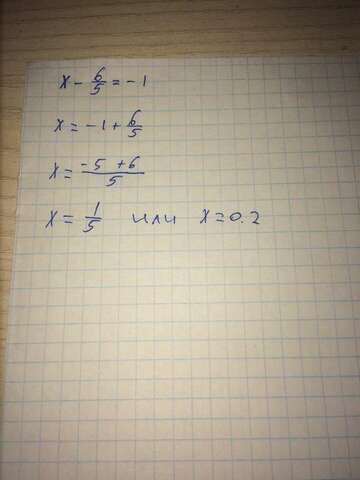 x - 6/5 = -1
x = -1 + 6/5
x = (-5 + 6)/5
x = 1/5 или x = 0.2